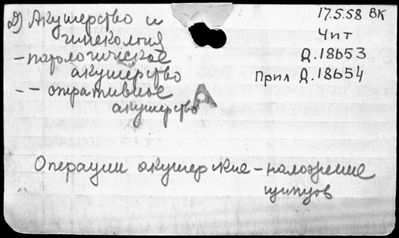 д) Акушерство и
гинекология
- патологическое
акушерство
- - оперативное
акушерство
А
17.5.58 ВК
Чит
Д.18653
Прил Д.18654
Операции акушерские - наложение
щипцов